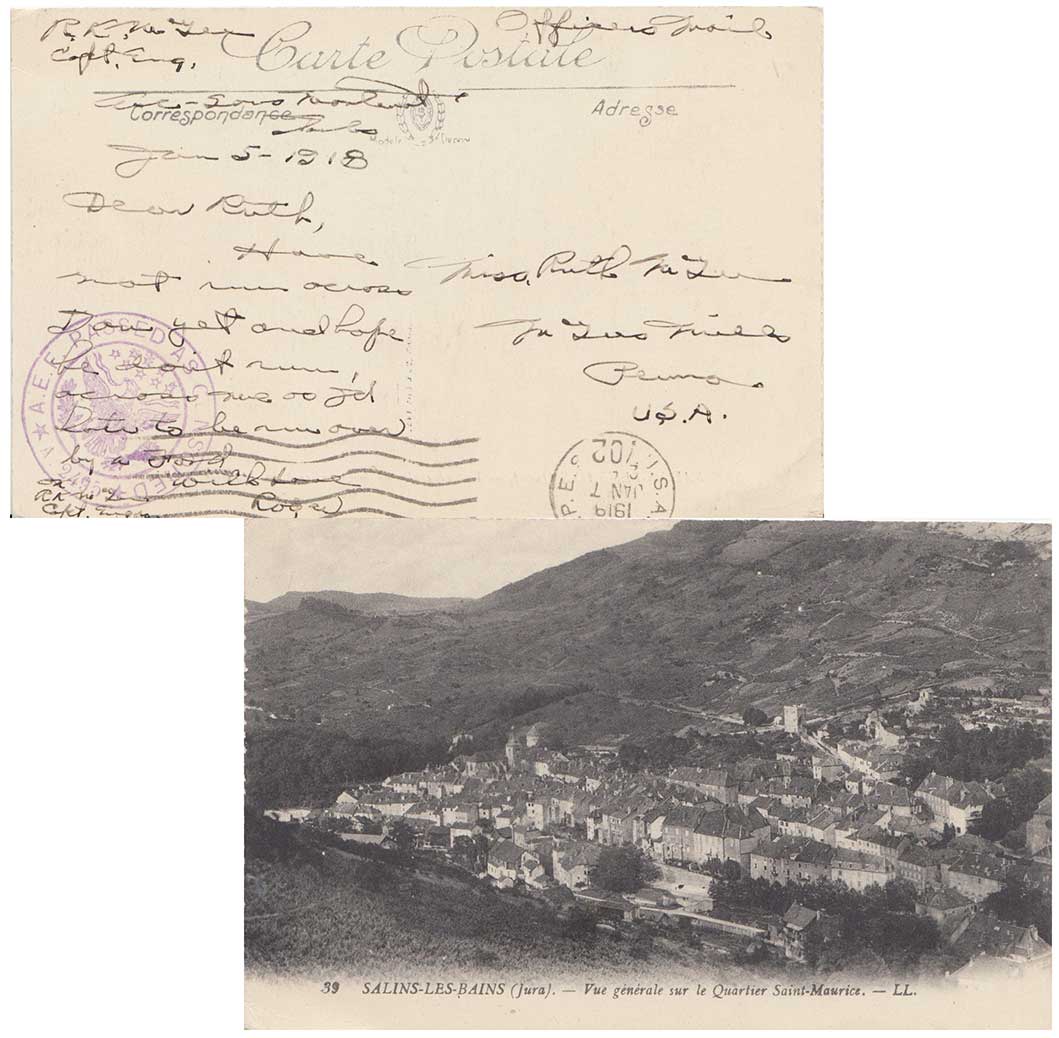 R.R. McGee
Capt. Eng.
Officers Mail
Carte Postale
Arc-Sous Montenot
Correspondance
Adresse
Doubs
Modèle
Jan 5-1918
Dear Ruth,
Have
not run across
Don yet and hope
he don't run,
across me as I'd
hate to be run over
by a Ford
With love
Roger
RR McGee
Capt. Engrs
Miss, Ruth McGee
McGees Mills
Penna.
U.S.A.
A.E.F. PASSED AS CENSORED
U.S.A. P.E.S.
702
JAN 7
1919
39 SALINS-LES-BAINS (Jura). — Vue générale sur le Quartier Saint-Maurice. — LL.